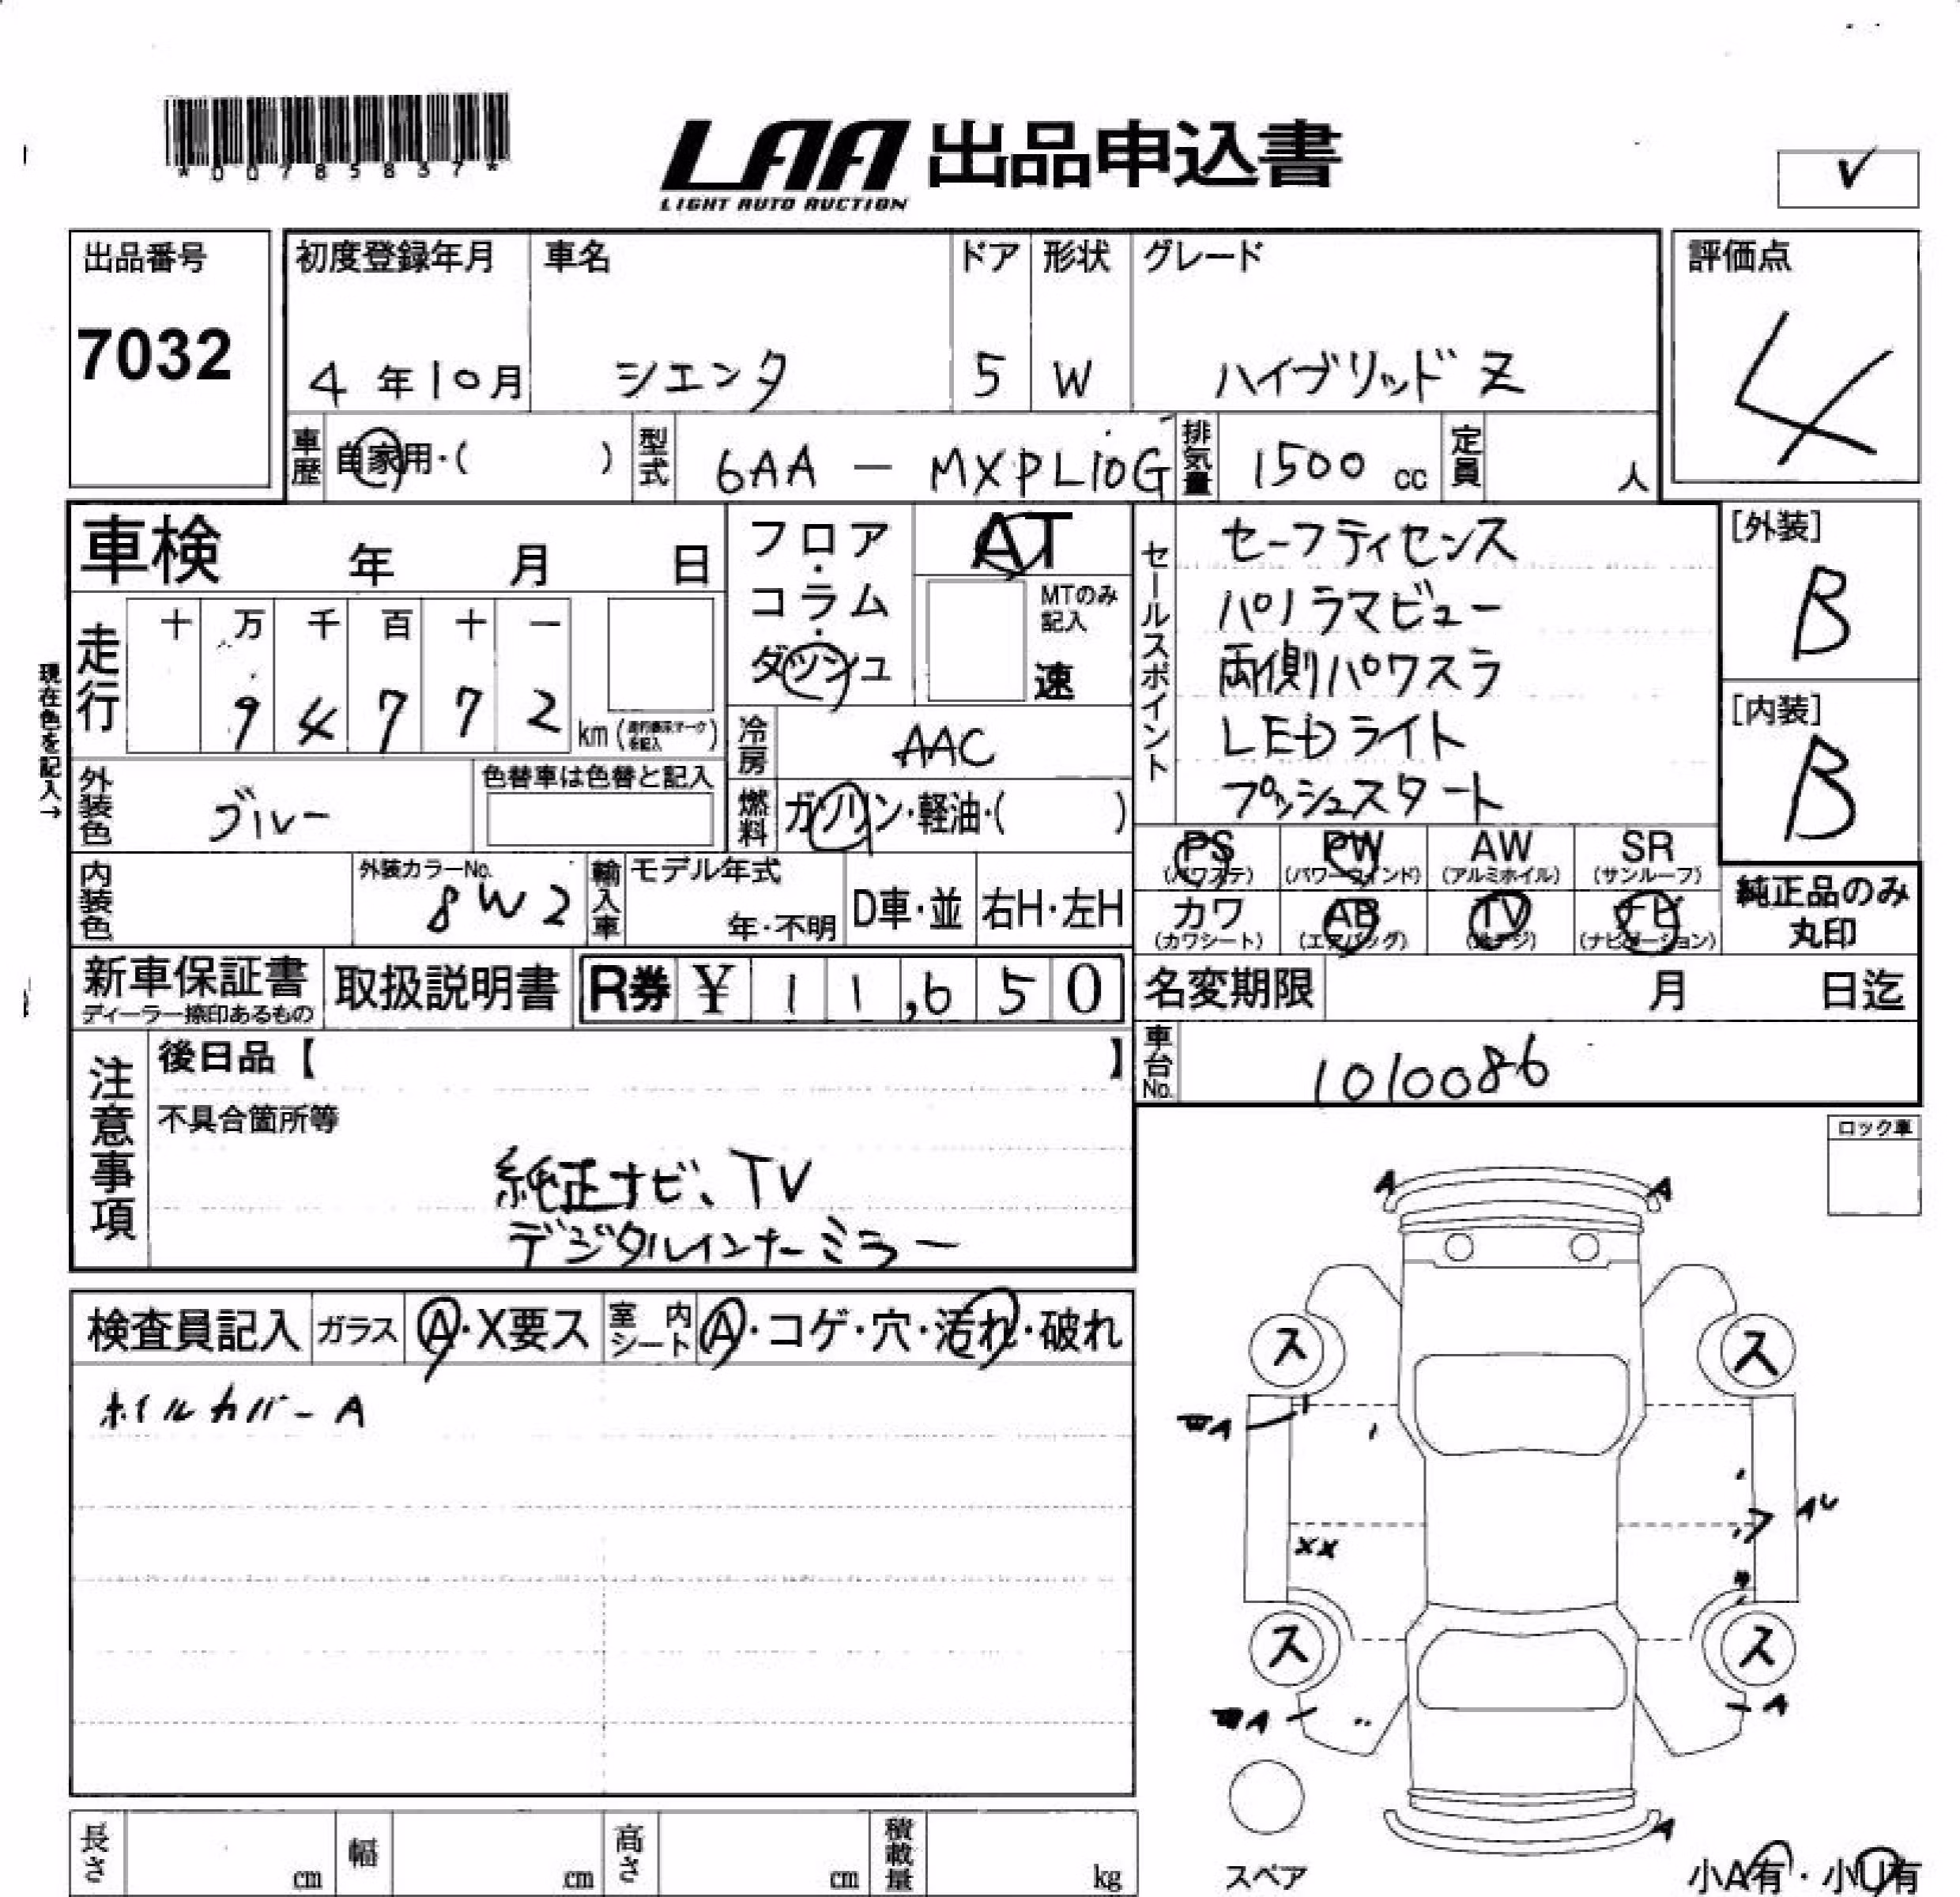 *00785837*
LAA 出品申込書
LIGHT AUTO AUCTION
✓
出品番号
7032
初度登録年月 車名 ドア 形状 グレード
4年10月 シエンタ 5 W ハイブリッド Z
評価点
4
車歴 自家用・( ) 型式 6AA - MXPL10G 排気量 1500 cc 定員 人
車検 年 月 日
フロア・コラム・ダッシュ
AT
MTのみ記入
速
走行 十 万 千 百 十 一
9 4 7 7 2 km
現在色を記入→
冷房 AAC
燃料 ガソリン・軽油・( )
外装色 ブルー
色替車は色替と記入
内装色
外装カラーNo.
8W2
輸入車 モデル年式
年・不明 D車・並 右H・左H
セールスポイント
セーフティセンス
パノラマビュー
両側パワスラ
LEDライト
プッシュスタート
[外装]
B
[内装]
B
PS PW AW SR
(パワステ) (パワーウインド) (アルミホイル) (サンルーフ)
カワ AB TV ナビ
(カワシート) (エアバッグ) (ナビゲーション)
純正品のみ
丸印
新車保証書
ディーラー捺印あるもの
取扱説明書 R券 ¥ 11,650
名変期限 月 日迄
車台No. 1010086
注意事項
後日品【 】
不具合箇所等
純正ナビ、TV
デジタルインナーミラー
検査員記入 ガラス A・X要ス 室内シート A・コゲ・穴・汚れ・破れ
ホイルカバーA
ロック車
A A
ス ス
A
XX
ス ス
A A
A
スペア
小A有・小U有
長さ cm 幅 cm 高さ cm 積載量 kg